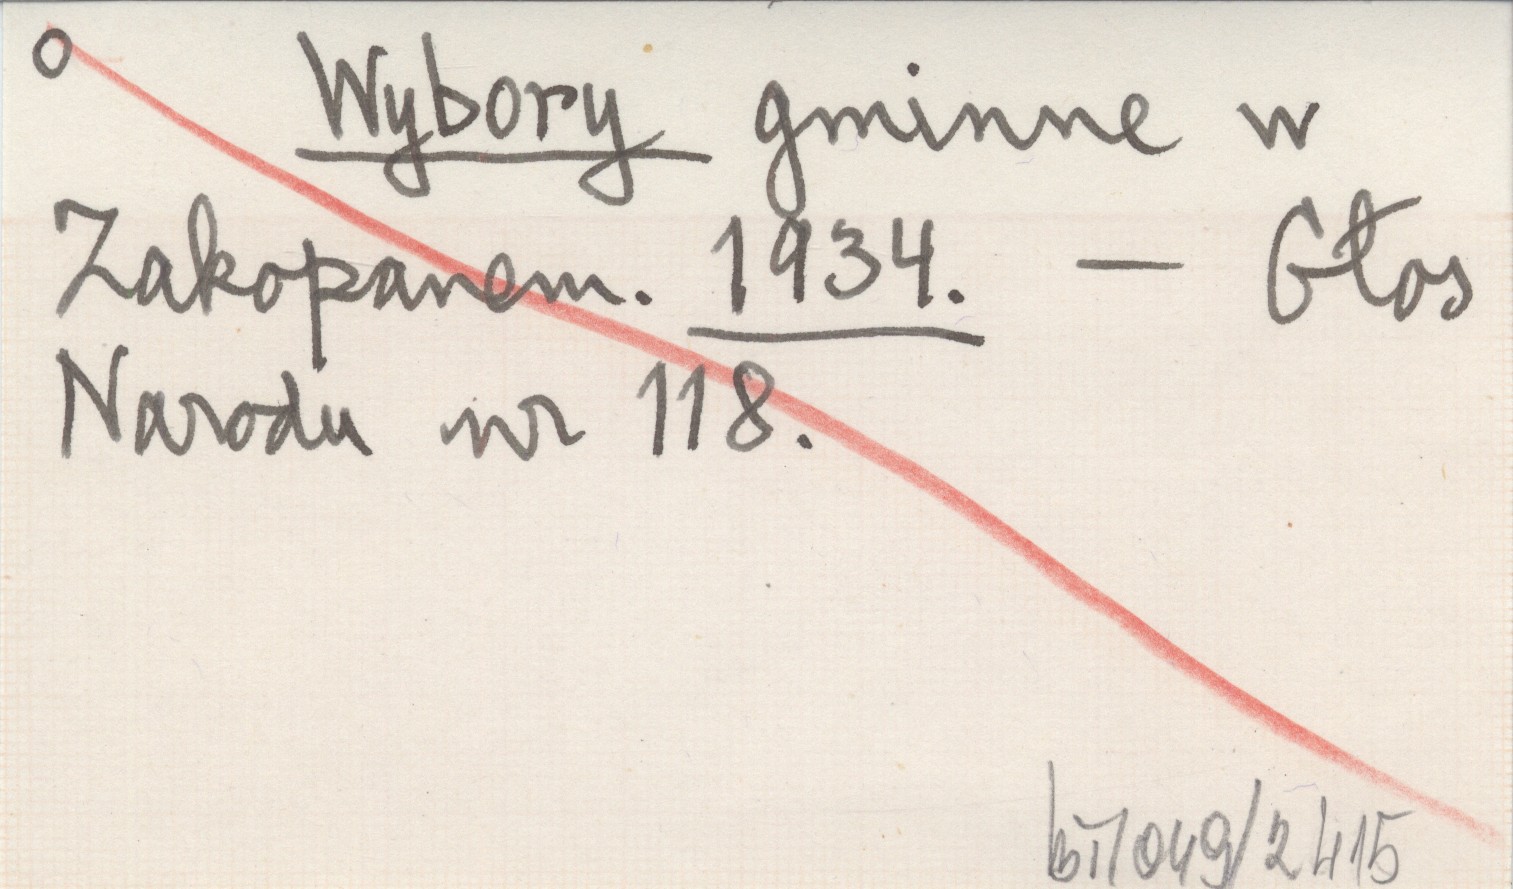 o Wybory gminne w
Zakopanem. 1934. — Głos
Narodu nr 118.
bī/049/2415